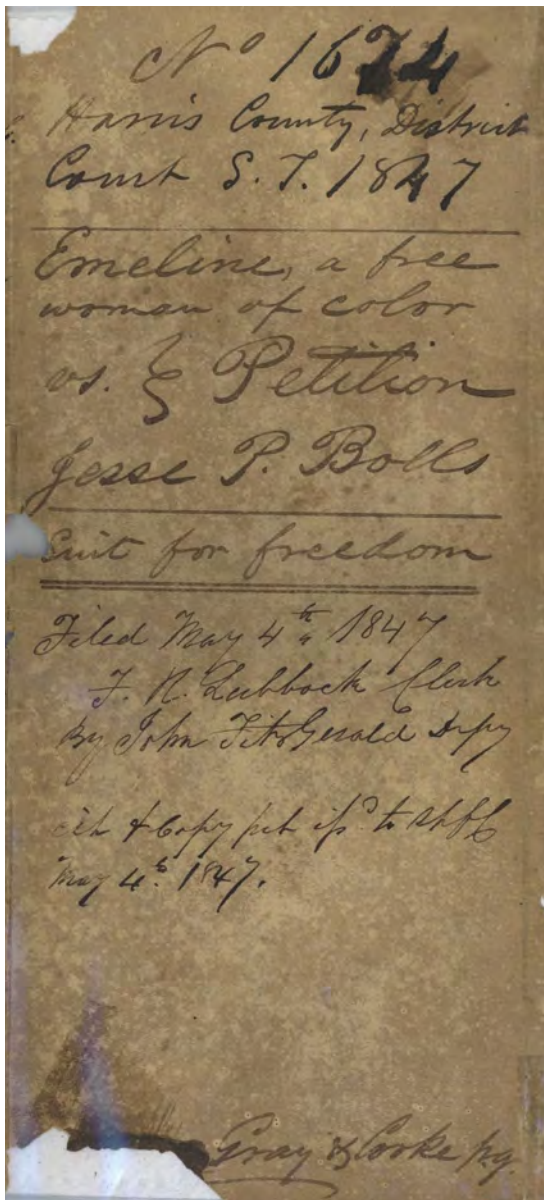 No 1624
Harris County, District
Court S. T. 1847
Emeline, a free
woman of color
vs. } Petition
Jesse P. Bolls
Suit for freedom
Filed May 4th 1847
F. R. Lubbock Clerk
By John FitzGerald Depy
& Copy pet issd to Shff
May 4th 1847.
Gray & Cooke p.q.